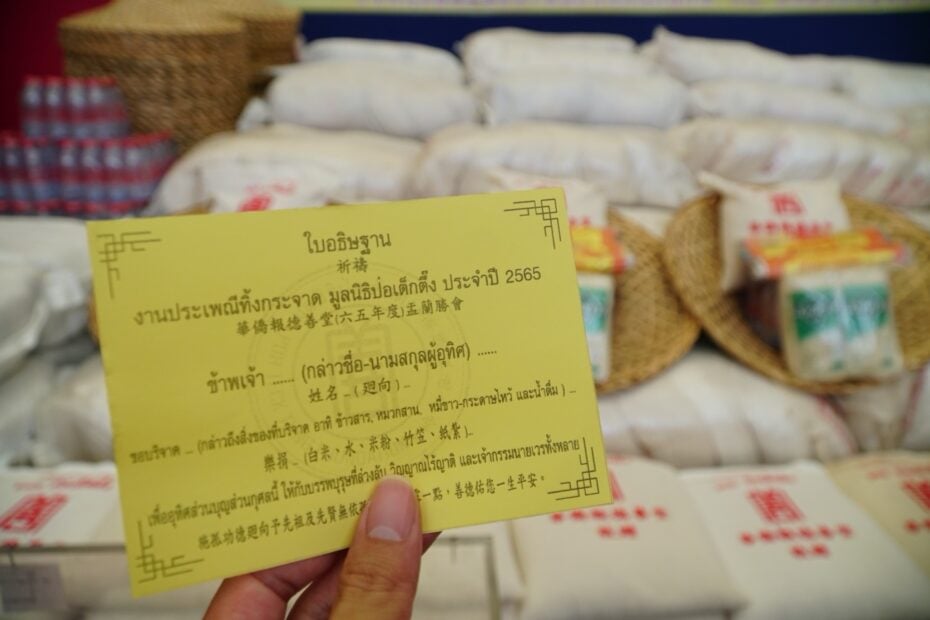 ใบอธิษฐาน
祈禱
งานประเพณีทิ้งกระจาด มูลนิธิป่อเต็กตึ๊ง ประจำปี 2565
華僑報德善堂(六五年度)盂蘭勝會
ข้าพเจ้า ...... (กล่าวชื่อ-นามสกุลผู้อุทิศ) ......
姓名 ..( 廻向 ) ...
ขอบริจาค ... (กล่าวถึงสิ่งของที่บริจาค อาทิ ข้าวสาร, หมวกสาน, หมี่ขาว-กระดาษไหว้ และน้ำดื่ม ) ...
樂捐... (白米、水、米粉、竹笠、紙紮)...
เพื่ออุทิศส่วนบุญส่วนกุศลนี้ ให้กับบรรพบุรุษที่ล่วงลับ วิญญาณไร้ญาติ และเจ้ากรรมนายเวรทั้งหลาย
施孤功德廻向予先祖及先賢無依 一點，善德佑您一生平安。